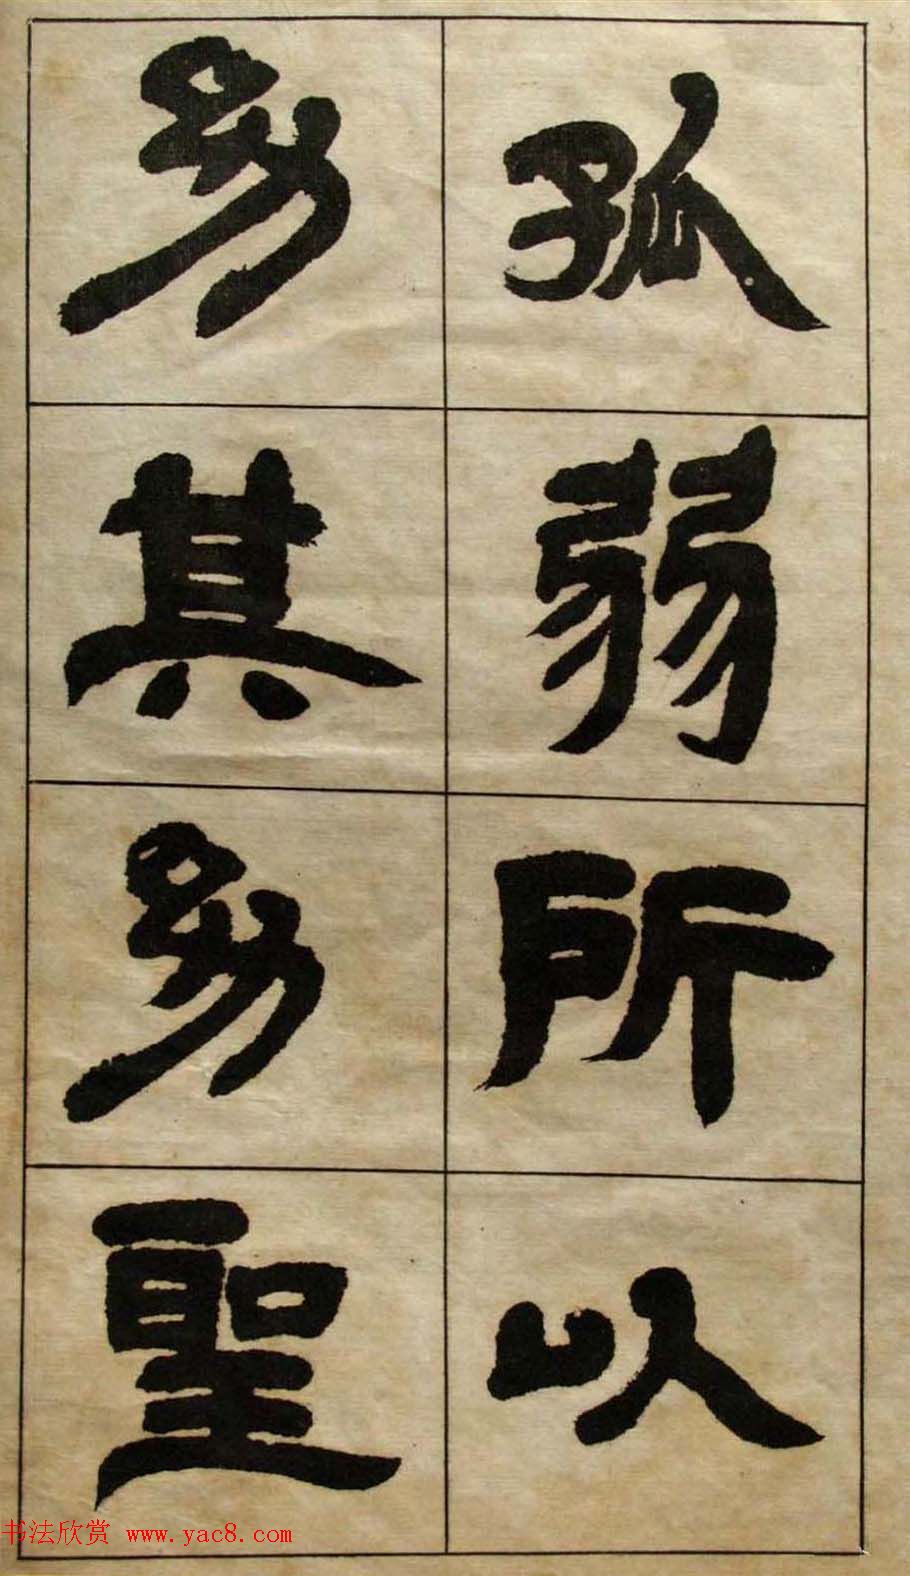 孤弱所以
幼其幼聖
书法欣赏 www.yac8.com